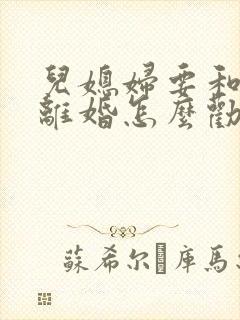 兒媳婦要和
離婚怎麼勸
蘇希尔·庫馬